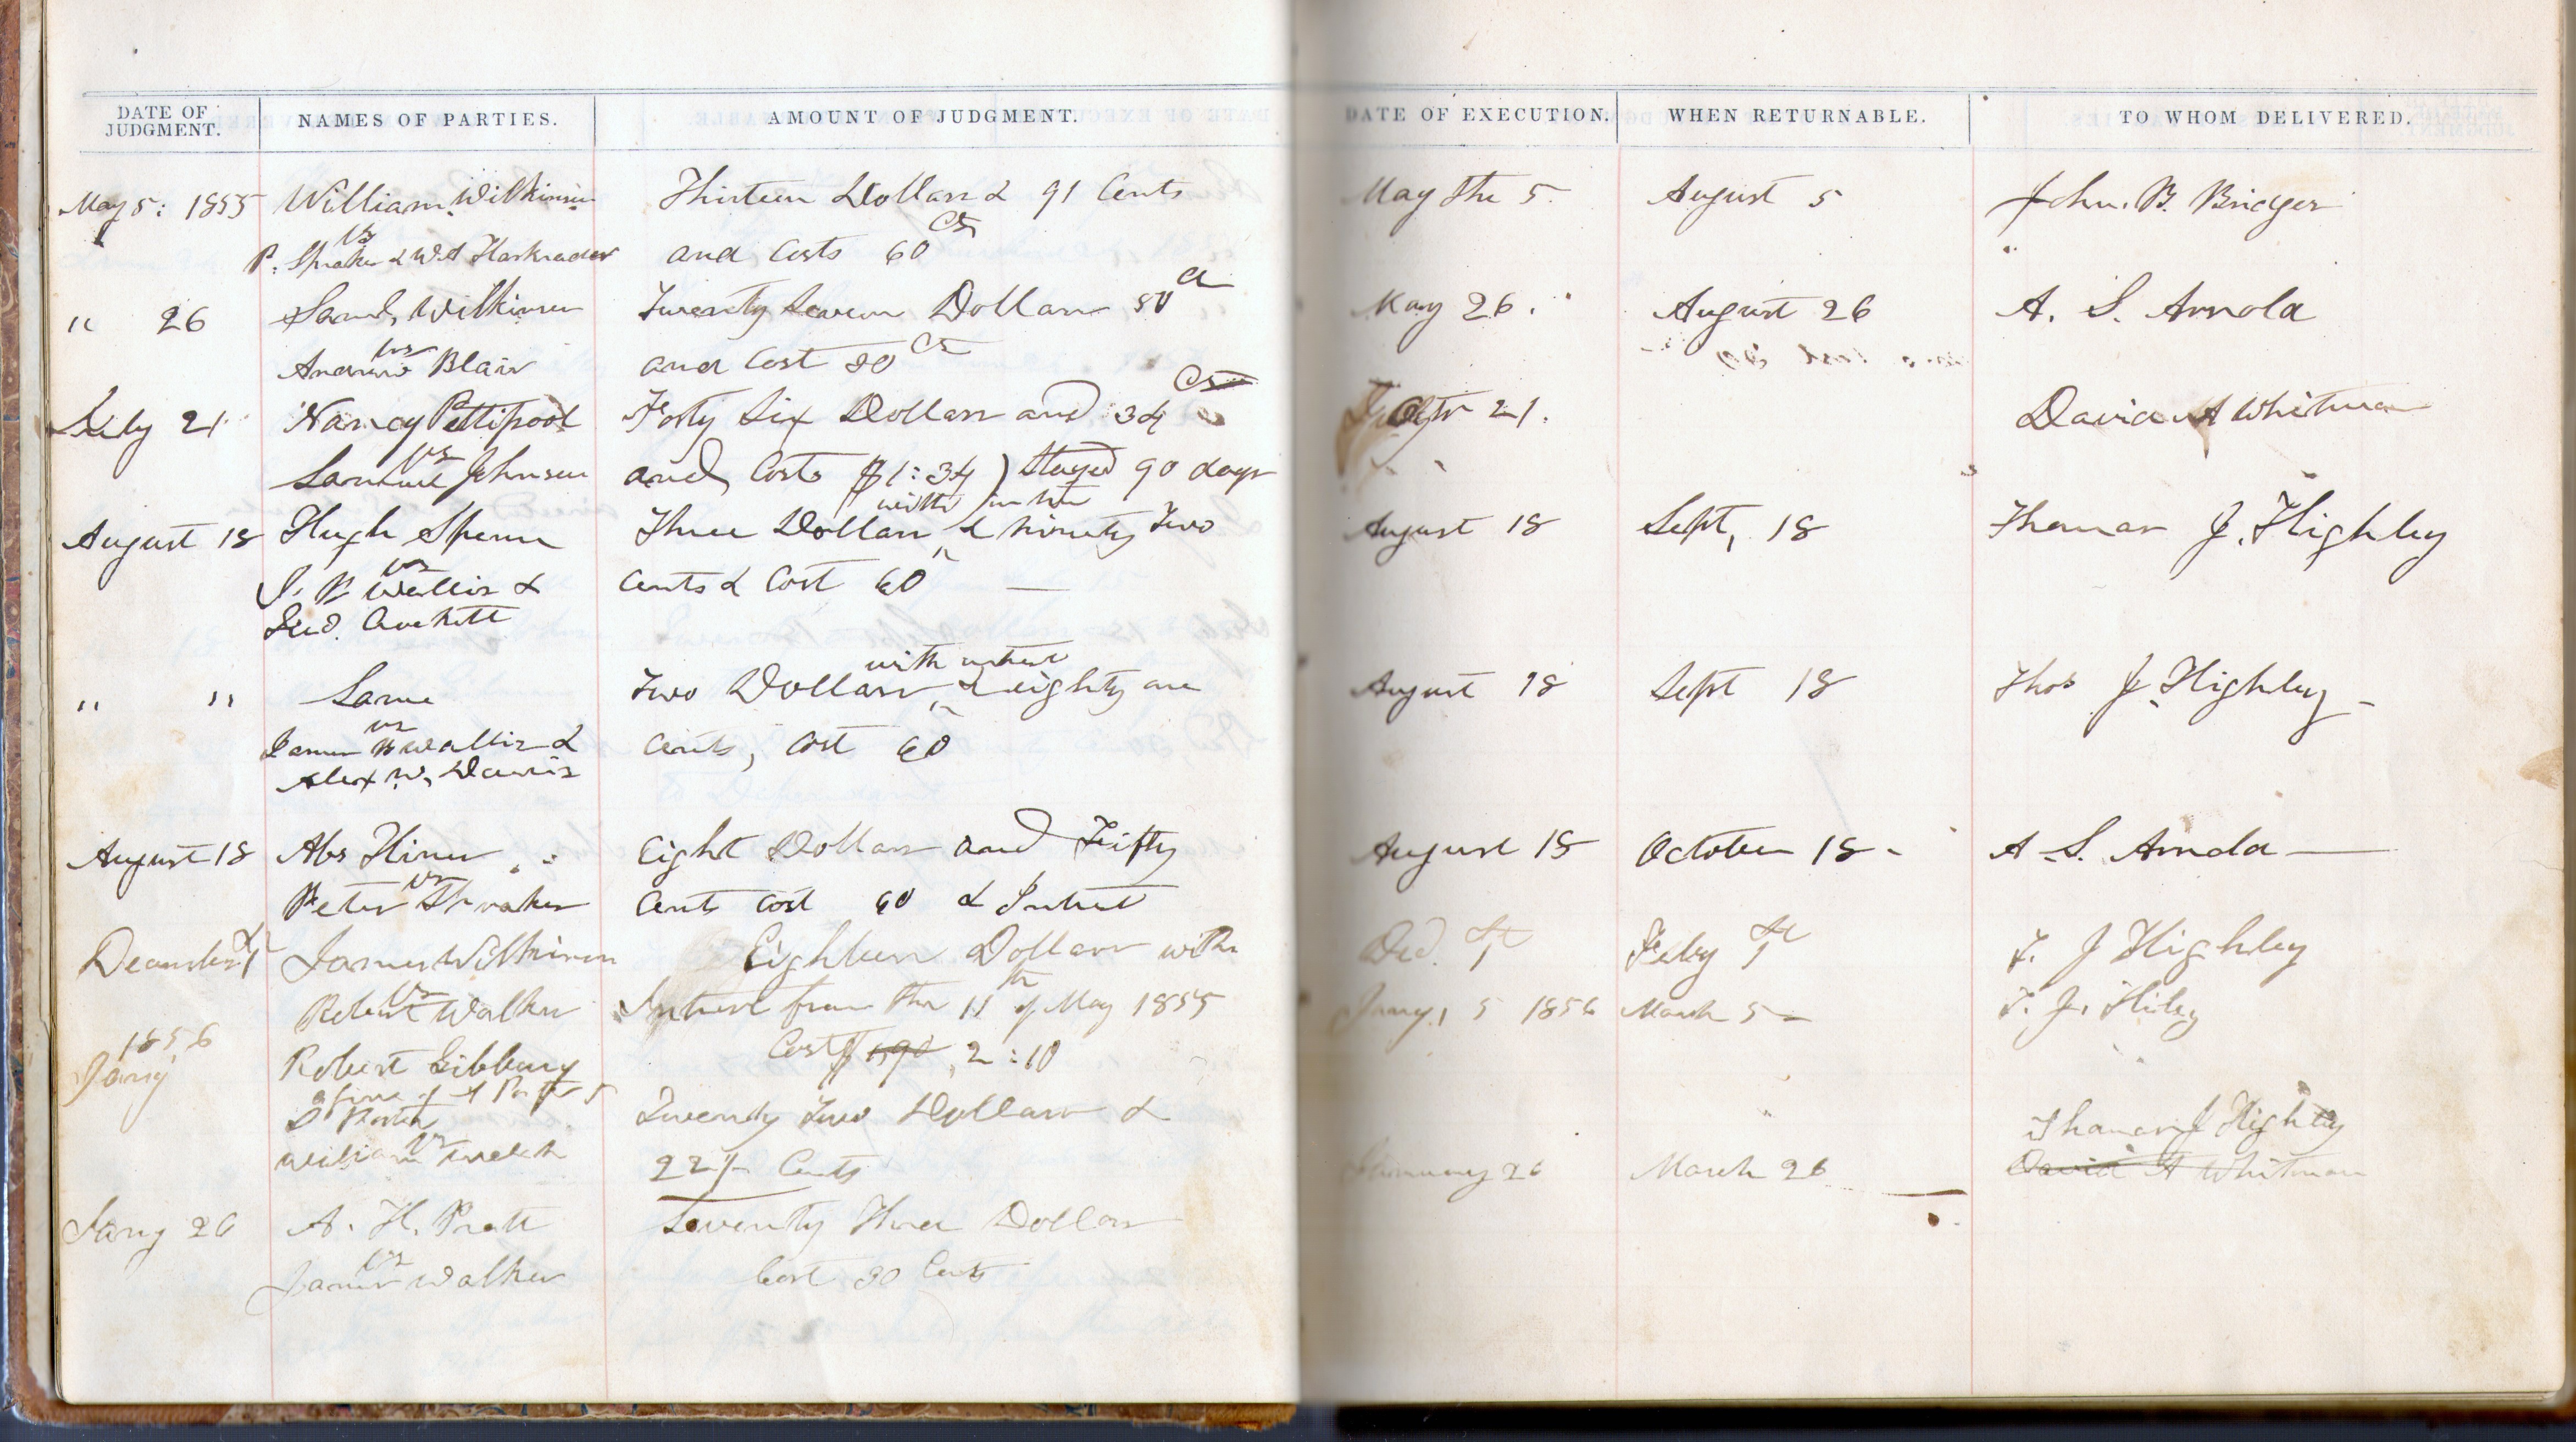 DATE OF JUDGMENT.
NAMES OF PARTIES.
AMOUNT OF JUDGMENT.
DATE OF EXECUTION.
WHEN RETURNABLE.
TO WHOM DELIVERED.
May 5: 1855 William Wilkinson Thirteen Dollars & 91 Cents May the 5 August 5 John. B. Bridger
vs cts
P. Spraker & W.A Harkrader and Costs 60
" 26 Saml, Wilkinson Twenty Seven Dollars 50 ct May 26. August 26 A. S. Arnold
vs
Andrew Blair and Cost 80 cts
July 21 Nancy Pettipool Forty Six Dollars and 34 Cts 21. David A Whitman
vs
Samuel Johnson and Costs $1:34) Stayed 90 days
with inst
August 18 Hugh Spence Three Dollars & ninety two August 18 Sept, 18 Thomas J. Highley
vs
J. B Wallis & cents & Cost 60 —
Jno. Crockett
with intrest
" " Same Two Dollars, & eighty one August 18 Sept 18 Thos J Highley -
vs
James B Wallis & cents, Cost 60
Alex W. Davis
August 18 Abs Hiner Eight Dollars and Fifty August 18 October 18 - A. S. Arnold —
vs
Peter Spraker Cents Cost 60 & Intrest
December 1st James Wilkinson Eighteen Dollars with Decr. 1st Feby 1st T. J Highley
vs
Robert Walker Intrest from the 11th of May 1855 Jany, 5 1856 March 5 - T. J. Hiley
1856 Cost $ 1,90 2:10
Jany Robert Gibboney
D Porter Twenty two Dollars & Thomas J Highley
vs
William Welch 22½ Cents January 26 March 26 David A Whitman
Jany 26 A. H. Pratt Seventy Three Dollars
vs
James Walker Cost 30 Cents